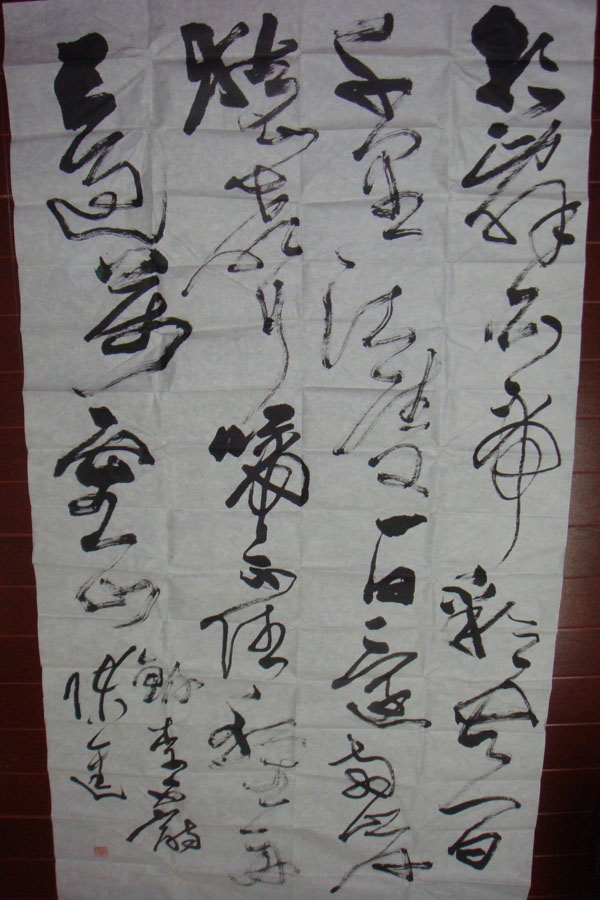 朝辭白帝彩雲間
千里江陵一日還兩岸
猿聲啼不住輕舟
已過萬重山
錄李白詩